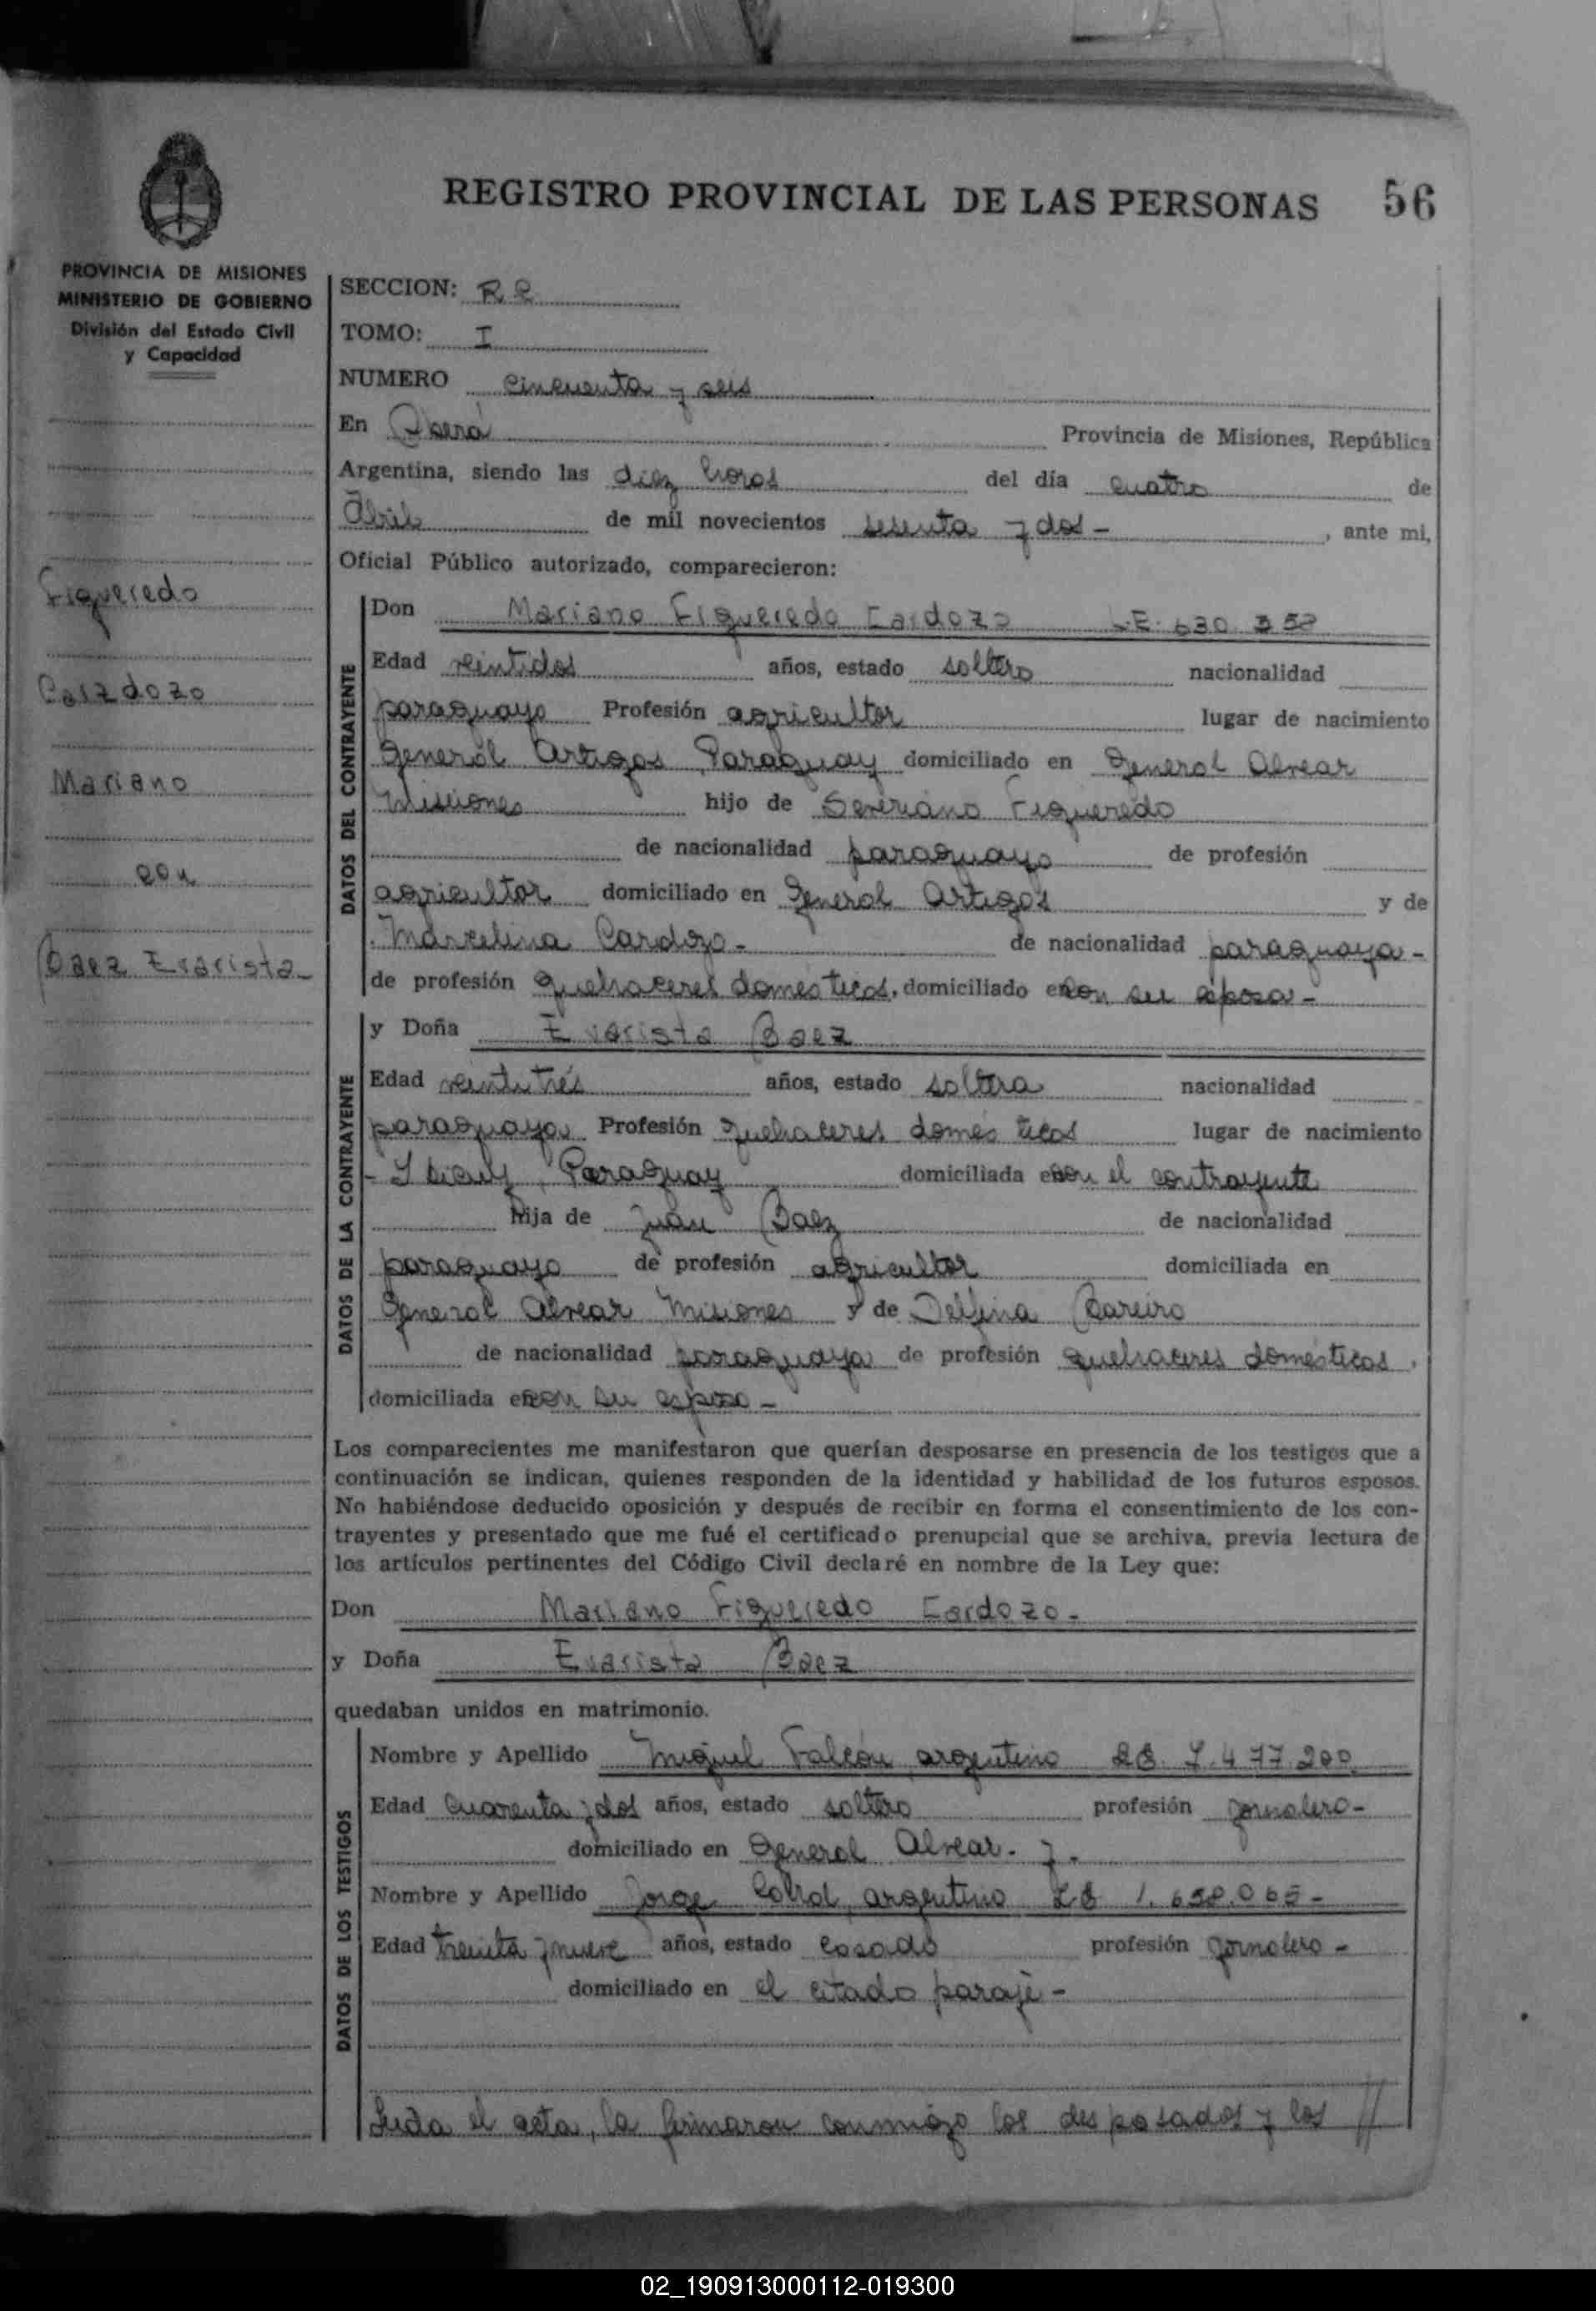 REGISTRO PROVINCIAL DE LAS PERSONAS 56
PROVINCIA DE MISIONES
MINISTERIO DE GOBIERNO
División del Estado Civil
y Capacidad
Figueredo
Mariano
con
Baez Evarista
SECCION:
TOMO: I
NUMERO cincuenta y seis
En Oberá Provincia de Misiones, República
Argentina, siendo las diez horas del día cuatro de
Abril de mil novecientos sesenta y dos - , ante mi,
Oficial Público autorizado, comparecieron:
DATOS DEL CONTRAYENTE
Don Mariano Figueredo Cardozo
Edad veintidos años, estado soltero nacionalidad
paraguayo Profesión agricultor lugar de nacimiento
General Artigas, Paraguay domiciliado en General Alvear
Misiones hijo de Severiano Figueredo
de nacionalidad paraguayo de profesión
agricultor domiciliado en General Artigas y de
Marcelina Cardozo - de nacionalidad paraguaya -
de profesión quehaceres domésticos, domiciliado con su esposo -
DATOS DE LA CONTRAYENTE
y Doña Evarista Baez
Edad veintitrés años, estado soltera nacionalidad
paraguaya Profesión quehaceres domésticos lugar de nacimiento
Paraguay domiciliada con el contrayente
hija de Juan Baez de nacionalidad
paraguayo de profesión agricultor domiciliada en
General Alvear Misiones y de Delfina Bareiro
de nacionalidad paraguaya de profesión quehaceres domésticos,
domiciliada con su esposo -
Los comparecientes me manifestaron que querían desposarse en presencia de los testigos que a
continuación se indican, quienes responden de la identidad y habilidad de los futuros esposos.
No habiéndose deducido oposición y después de recibir en forma el consentimiento de los con-
trayentes y presentado que me fué el certificado prenupcial que se archiva, previa lectura de
los artículos pertinentes del Código Civil declaré en nombre de la Ley que:
Don Mariano Figueredo Cardozo -
y Doña Evarista Baez
quedaban unidos en matrimonio.
DATOS DE LOS TESTIGOS
Nombre y Apellido Miguel Falcón, argentino
Edad cuarenta y dos años, estado soltero profesión jornalero -
domiciliado en General Alvear. y.
Nombre y Apellido Jorge argentino 1.658.065 -
Edad treinta y nueve años, estado casado profesión jornalero -
domiciliado en el citado paraje -
Leida el acta, la firmaron conmigo los desposados y los //
02_190913000112-019300